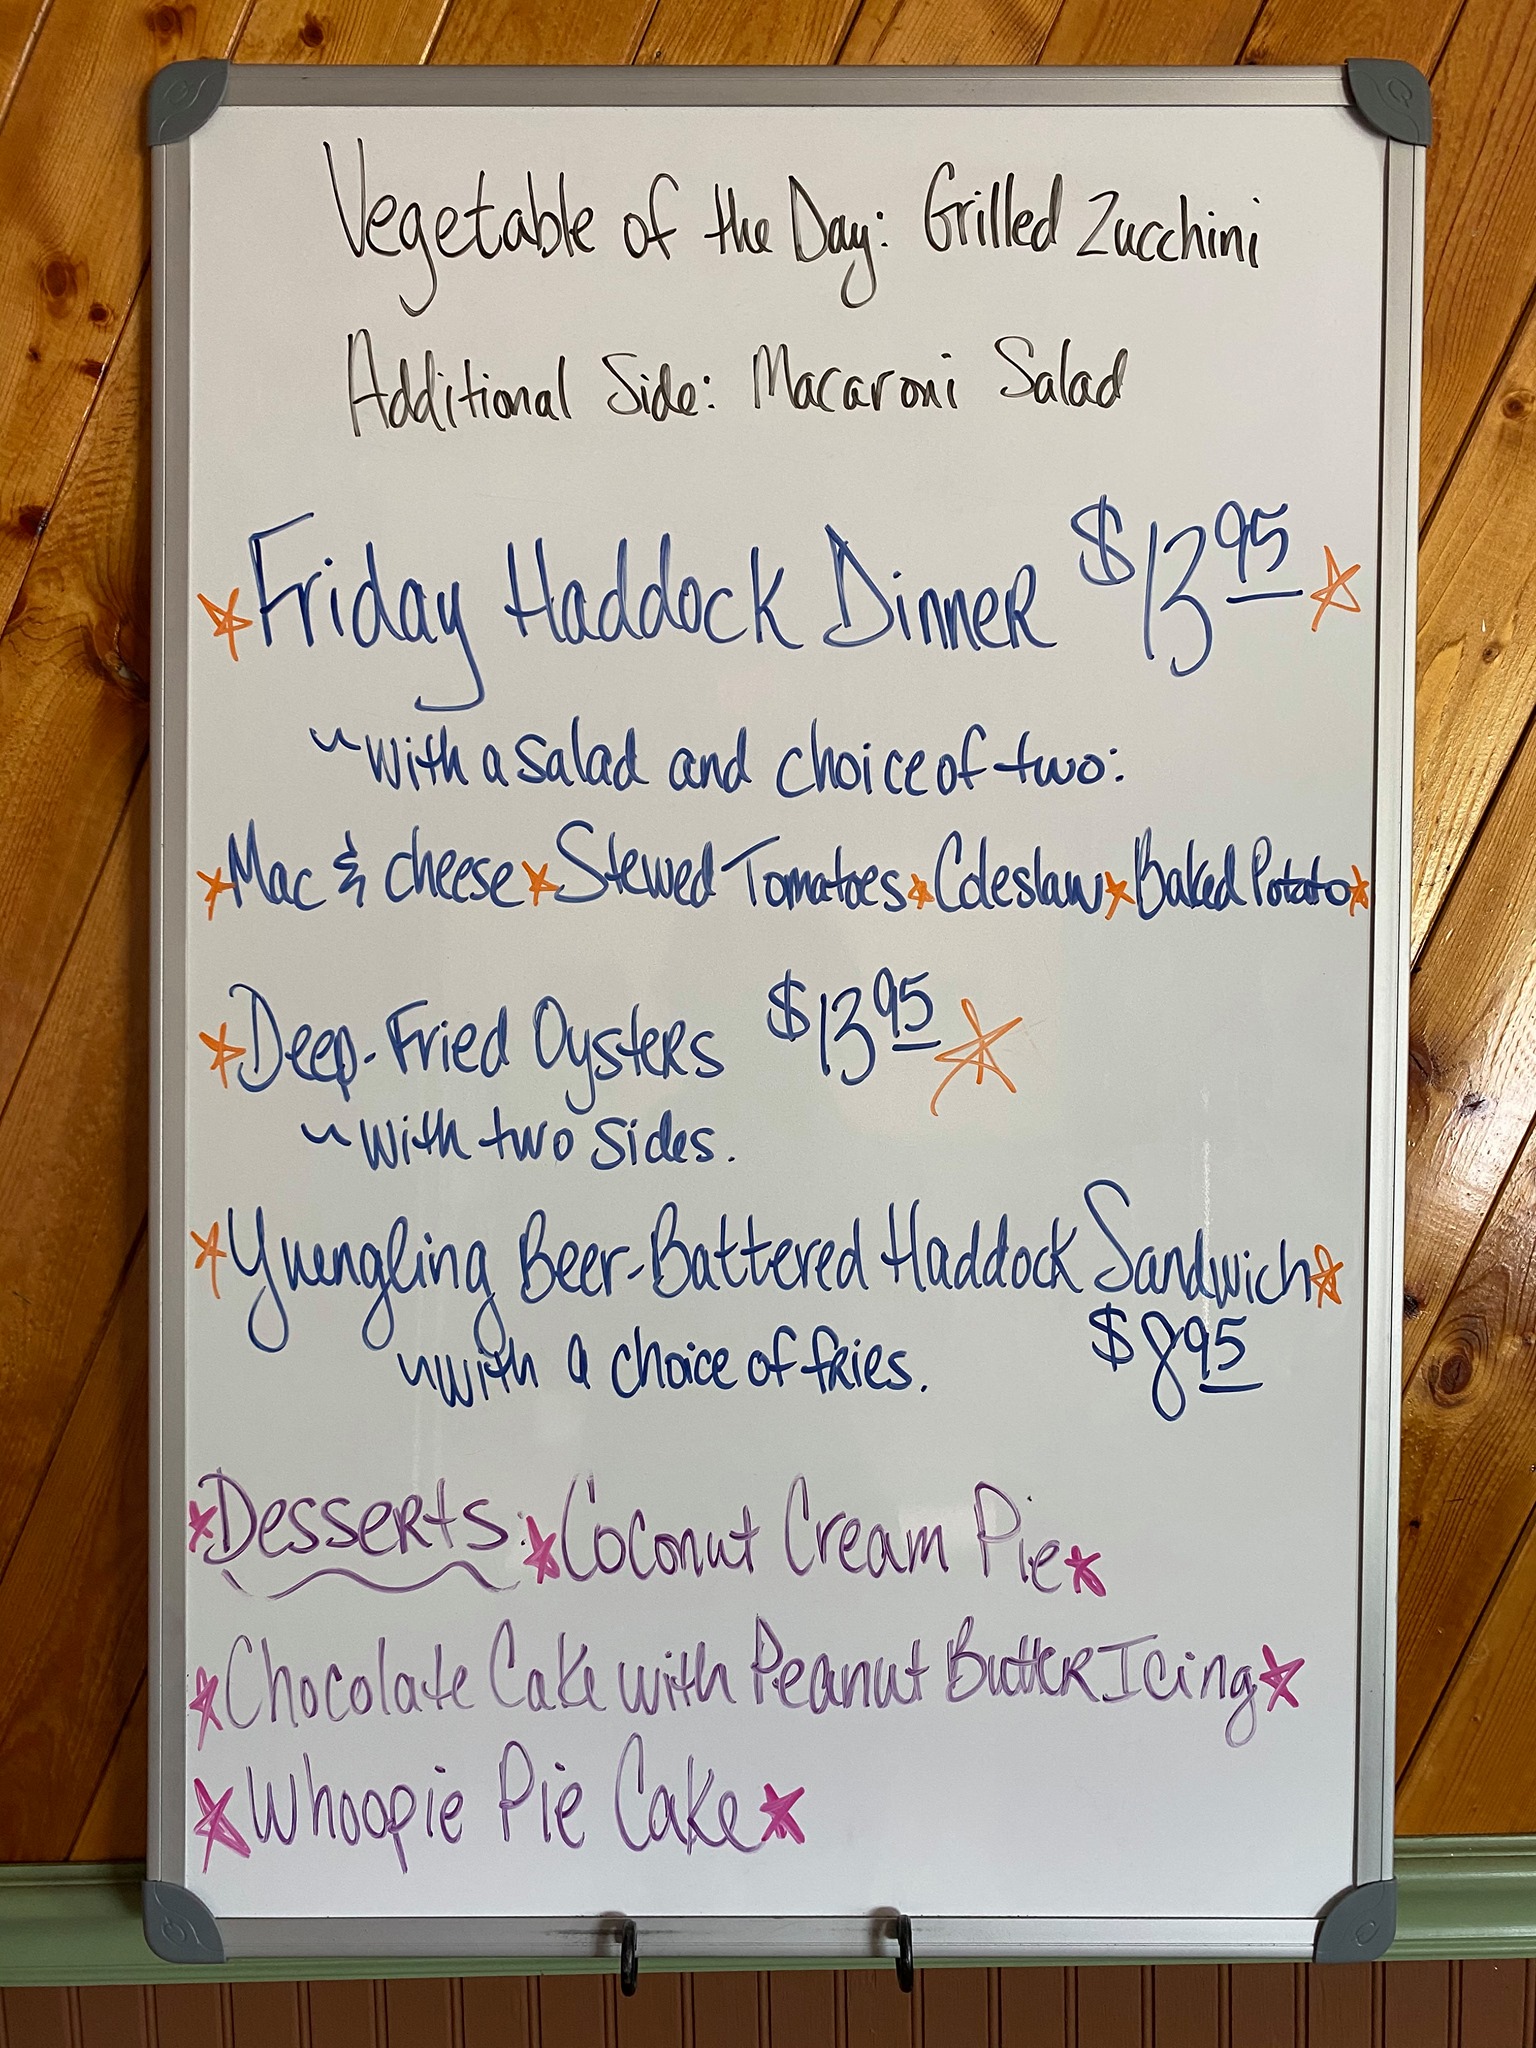 Vegetable of the Day: Grilled Zucchini
Additional Side: Macaroni Salad
Friday Haddock Dinner $13.95
~with a salad and choice of two:
Mac & cheese Stewed Tomatoes Coleslaw Baked Potato
Deep-Fried Oysters $13.95
~with two sides.
Yuengling Beer-Battered Haddock Sandwich
~with a choice of fries. $8.95
Desserts: Coconut Cream Pie
Chocolate Cake with Peanut Butter Icing
Whoopie Pie Cake